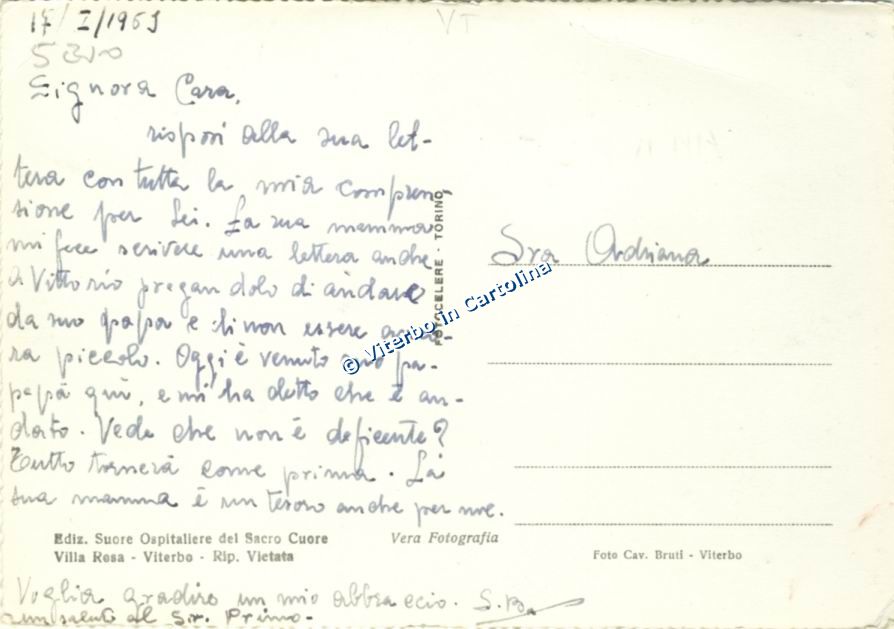 17/I/1963
5310
Signora Cara,
risposi alla sua let-
tera con tutta la mia compren-
sione per Lei. La sua mamma
mi fece scrivere una lettera anche
a Vittorio pregandolo di andare
da suo papà e di non essere anco-
ra piccolo. Oggi è venuto suo pa-
papà qui, e mi ha detto che è an-
dato. Vede che non è deficente?
Tutto tornerà come prima. La
sua mamma è un tesoro anche per me.
Voglia gradire un mio abbraccio. S.B.
un saluto al Sr. Primo-
Ediz. Suore Ospitaliere del Sacro Cuore
Villa Rosa - Viterbo - Rip. Vietata
Vera Fotografia
FOTOCELERE - TORINO
VT
Sra Adriana
Foto Cav. Bruti - Viterbo
© Viterbo in Cartolina